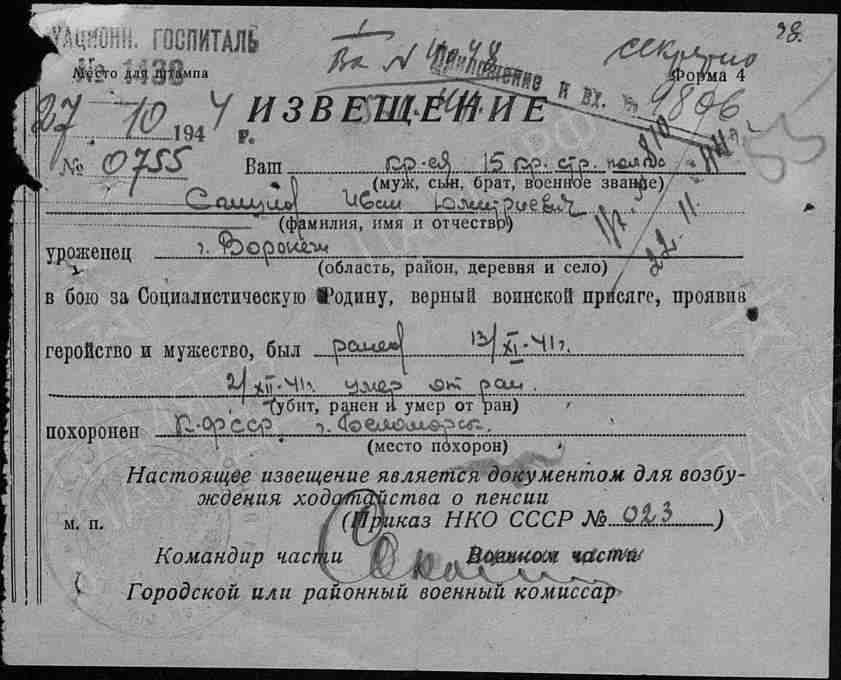 УАЦИОНН. ГОСПИТАЛЬ
№ 1438
Место для штампа
секретно
38.
Приложение и вх. № 9806
Форма 4
27 10 1944 г.
ИЗВЕЩЕНИЕ
№ 0755 Ваш кр-ец 15 кр. стр. полка
(муж, сын, брат, военное звание)
Иван Дмитриевич
(фамилия, имя и отчество)
22.11.
уроженец г. Воронеж
(область, район, деревня и село)
в бою за Социалистическую Родину, верный воинской присяге, проявив
геройство и мужество, был ранен 13/XI-41г.
2/XII-41г умер от ран.
(убит, ранен и умер от ран)
похоронен К-ФССР г. Беломорск.
(место похорон)
Настоящее извещение является документом для возбу-
ждения ходатайства о пенсии
м. п. (Приказ НКО СССР № 023)
Командир части Военком части
Городской или районный военный комиссар